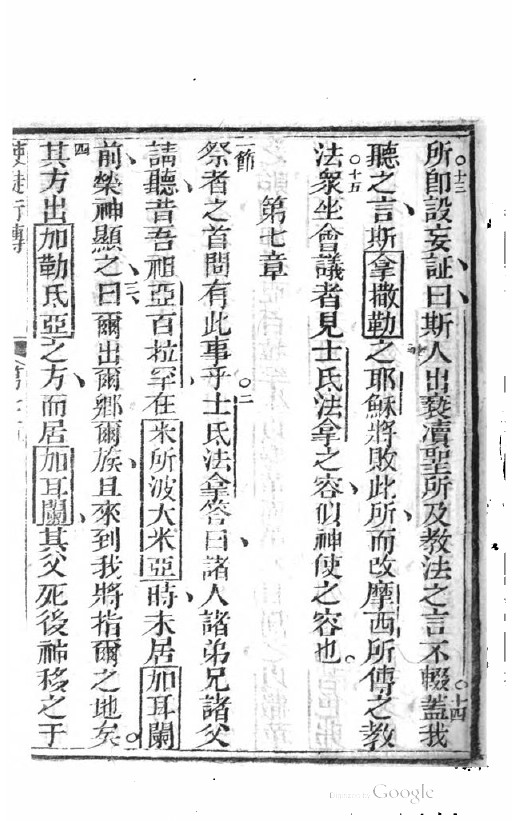 所即設妄証曰斯人出褻瀆聖所及教法之言不輟十四蓋我
聽之言斯拿撒勒之耶穌將敗此所而改摩西所傳之教
法十五衆坐會議者見士氐法拿之容似神使之容也
第七章
一節祭者之首問有此事乎二士氐法拿答曰諸人諸弟兄諸父
請聽昔吾祖亞百拉罕在米所波大米亞時未居加耳闌
前榮神顯之三曰爾出爾鄉爾族且來到我將指爾之地矣
四其方出加勒氐亞之方而居加耳闌其父死後神移之于
使徒行傳
Digitized by Google